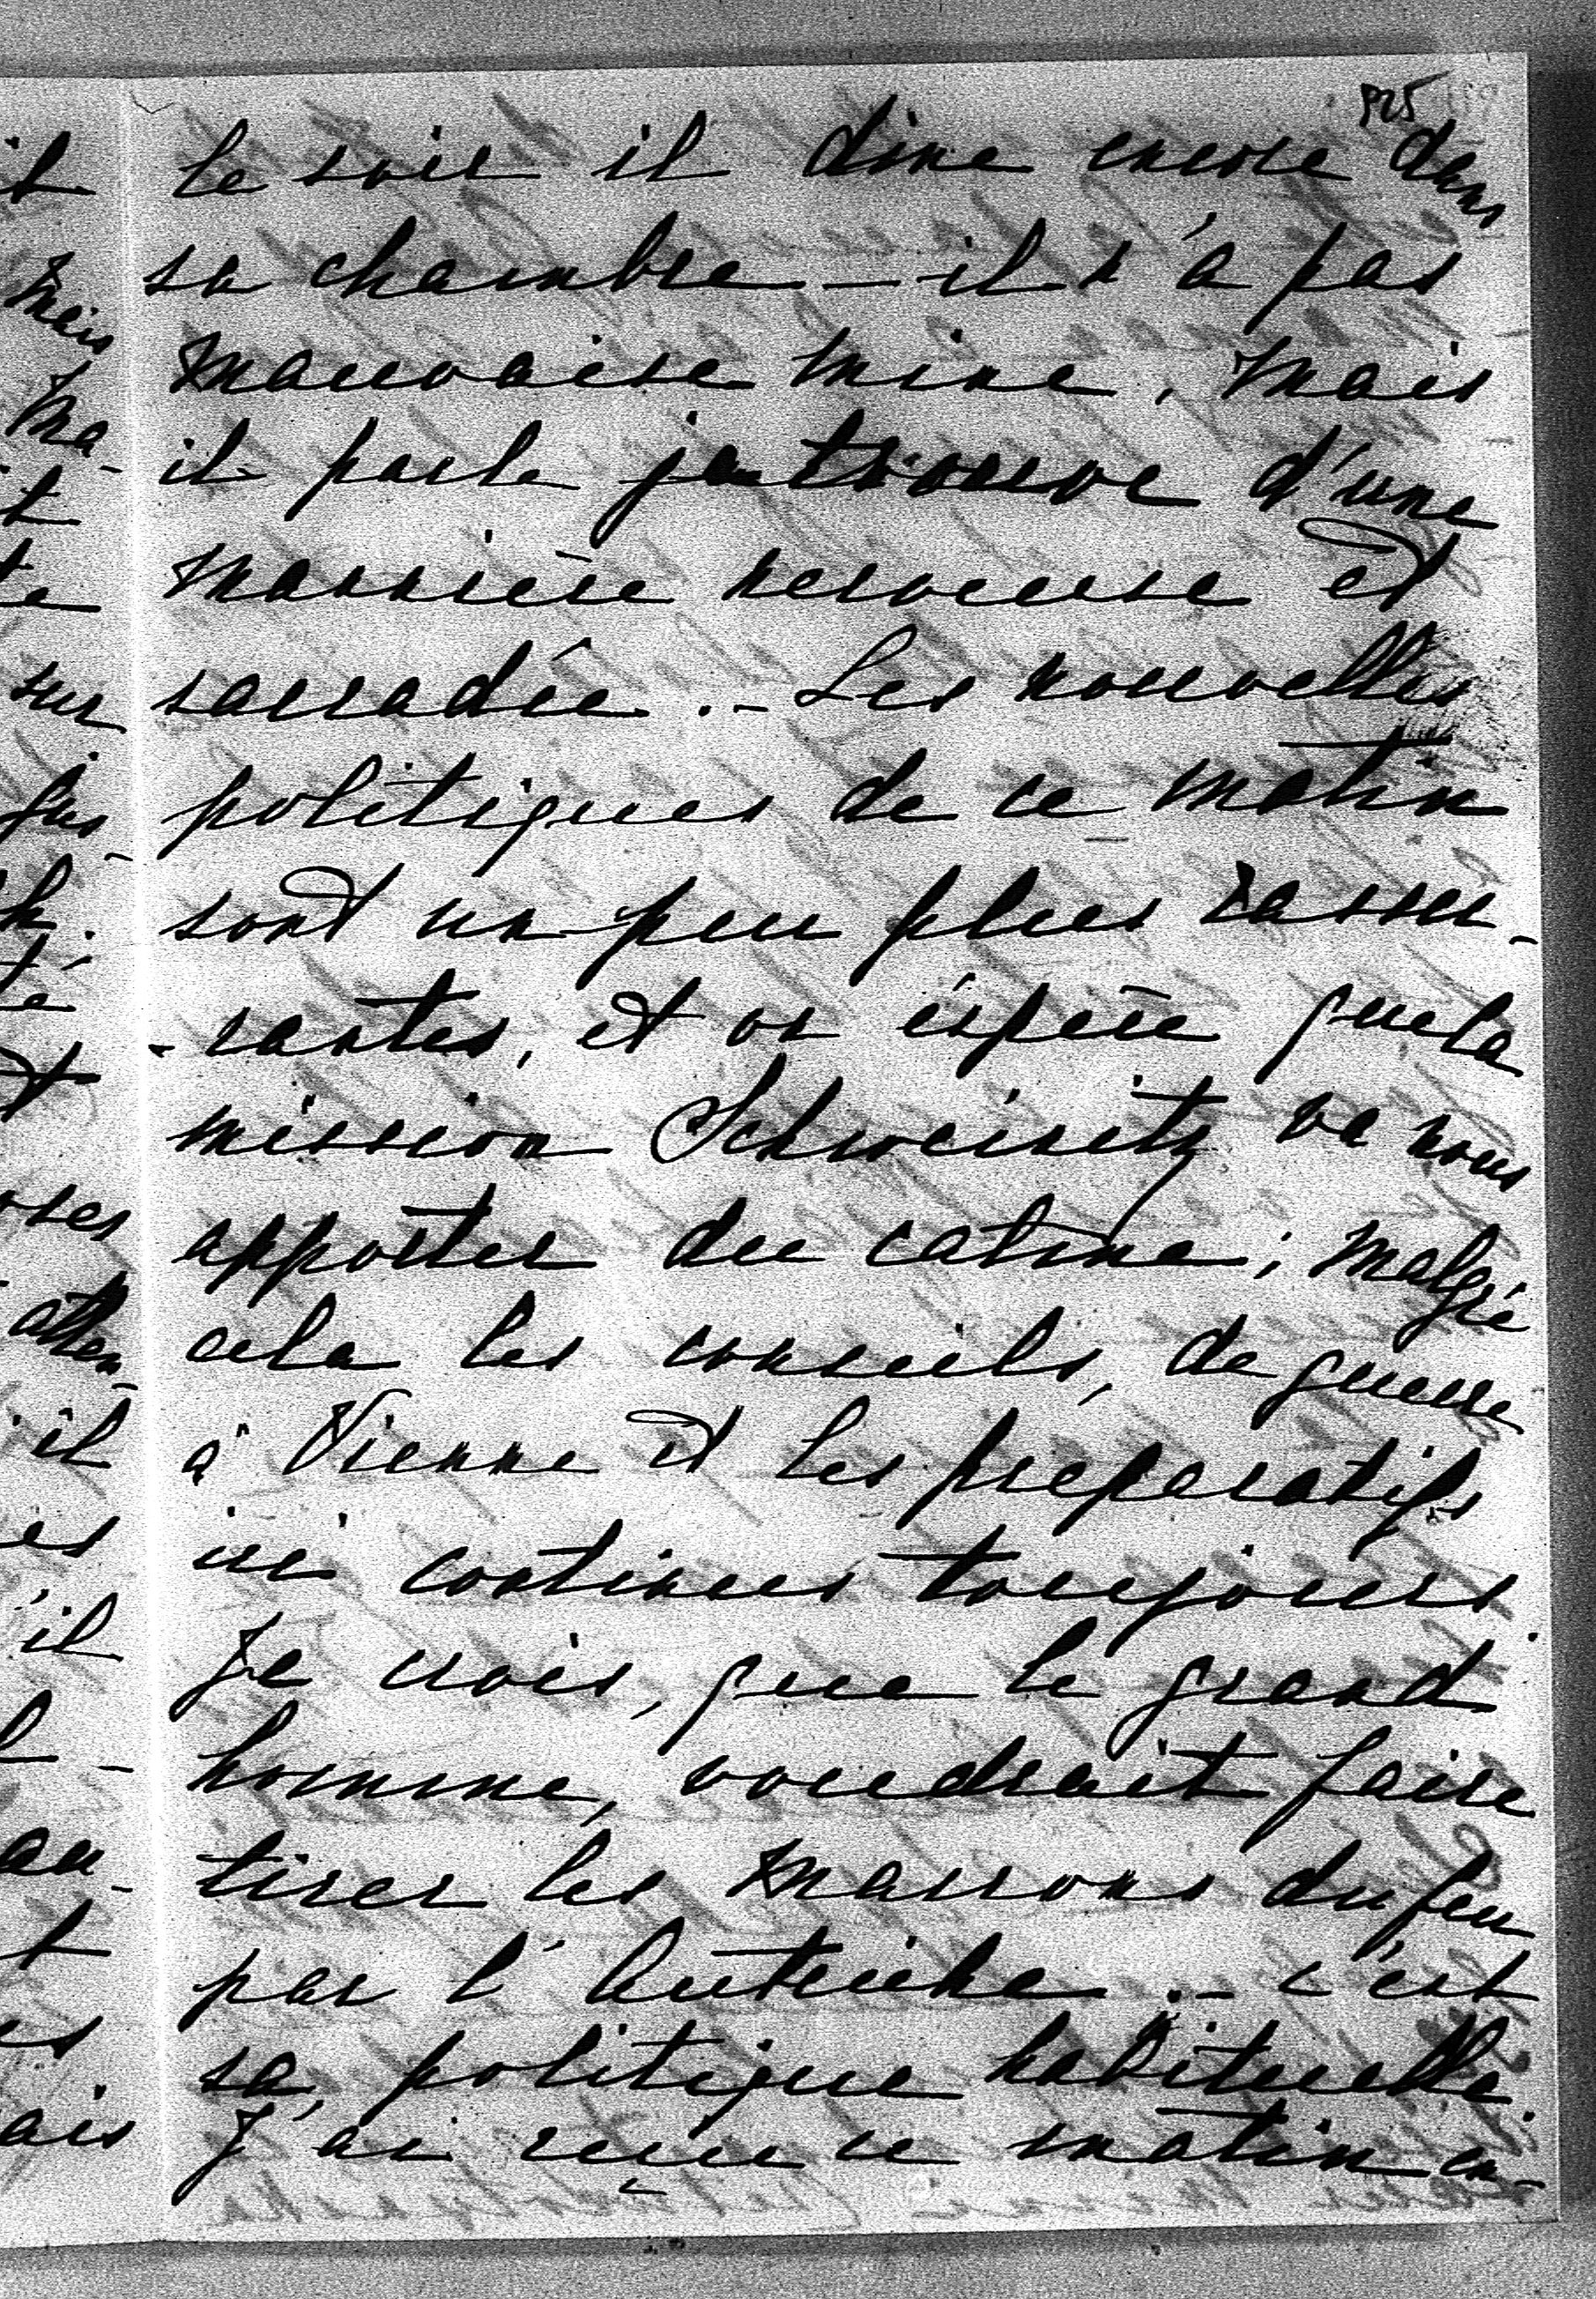 le soir il dîne encore dans
sa chambre – il n'a pas
mauvaise mine, mais
il parle je trouve d'une
mannière nerveuse et
saccadée. – Les nouvelles
politiques de ce matin
sont un peu plus rassu-
-rantes, et on éspère que la
mission Schweinitz va nous
apporter du calme; malgré
cela les conseils, de guerre
à Vienne et les préparatifs
ici continues toujours.
Je crois, que le grand
homme, voudrait faire
tirer les marrons du feu
par l'Autriche. – c'est
sa, politique habituelle.
J'ai reçu ce matin en-